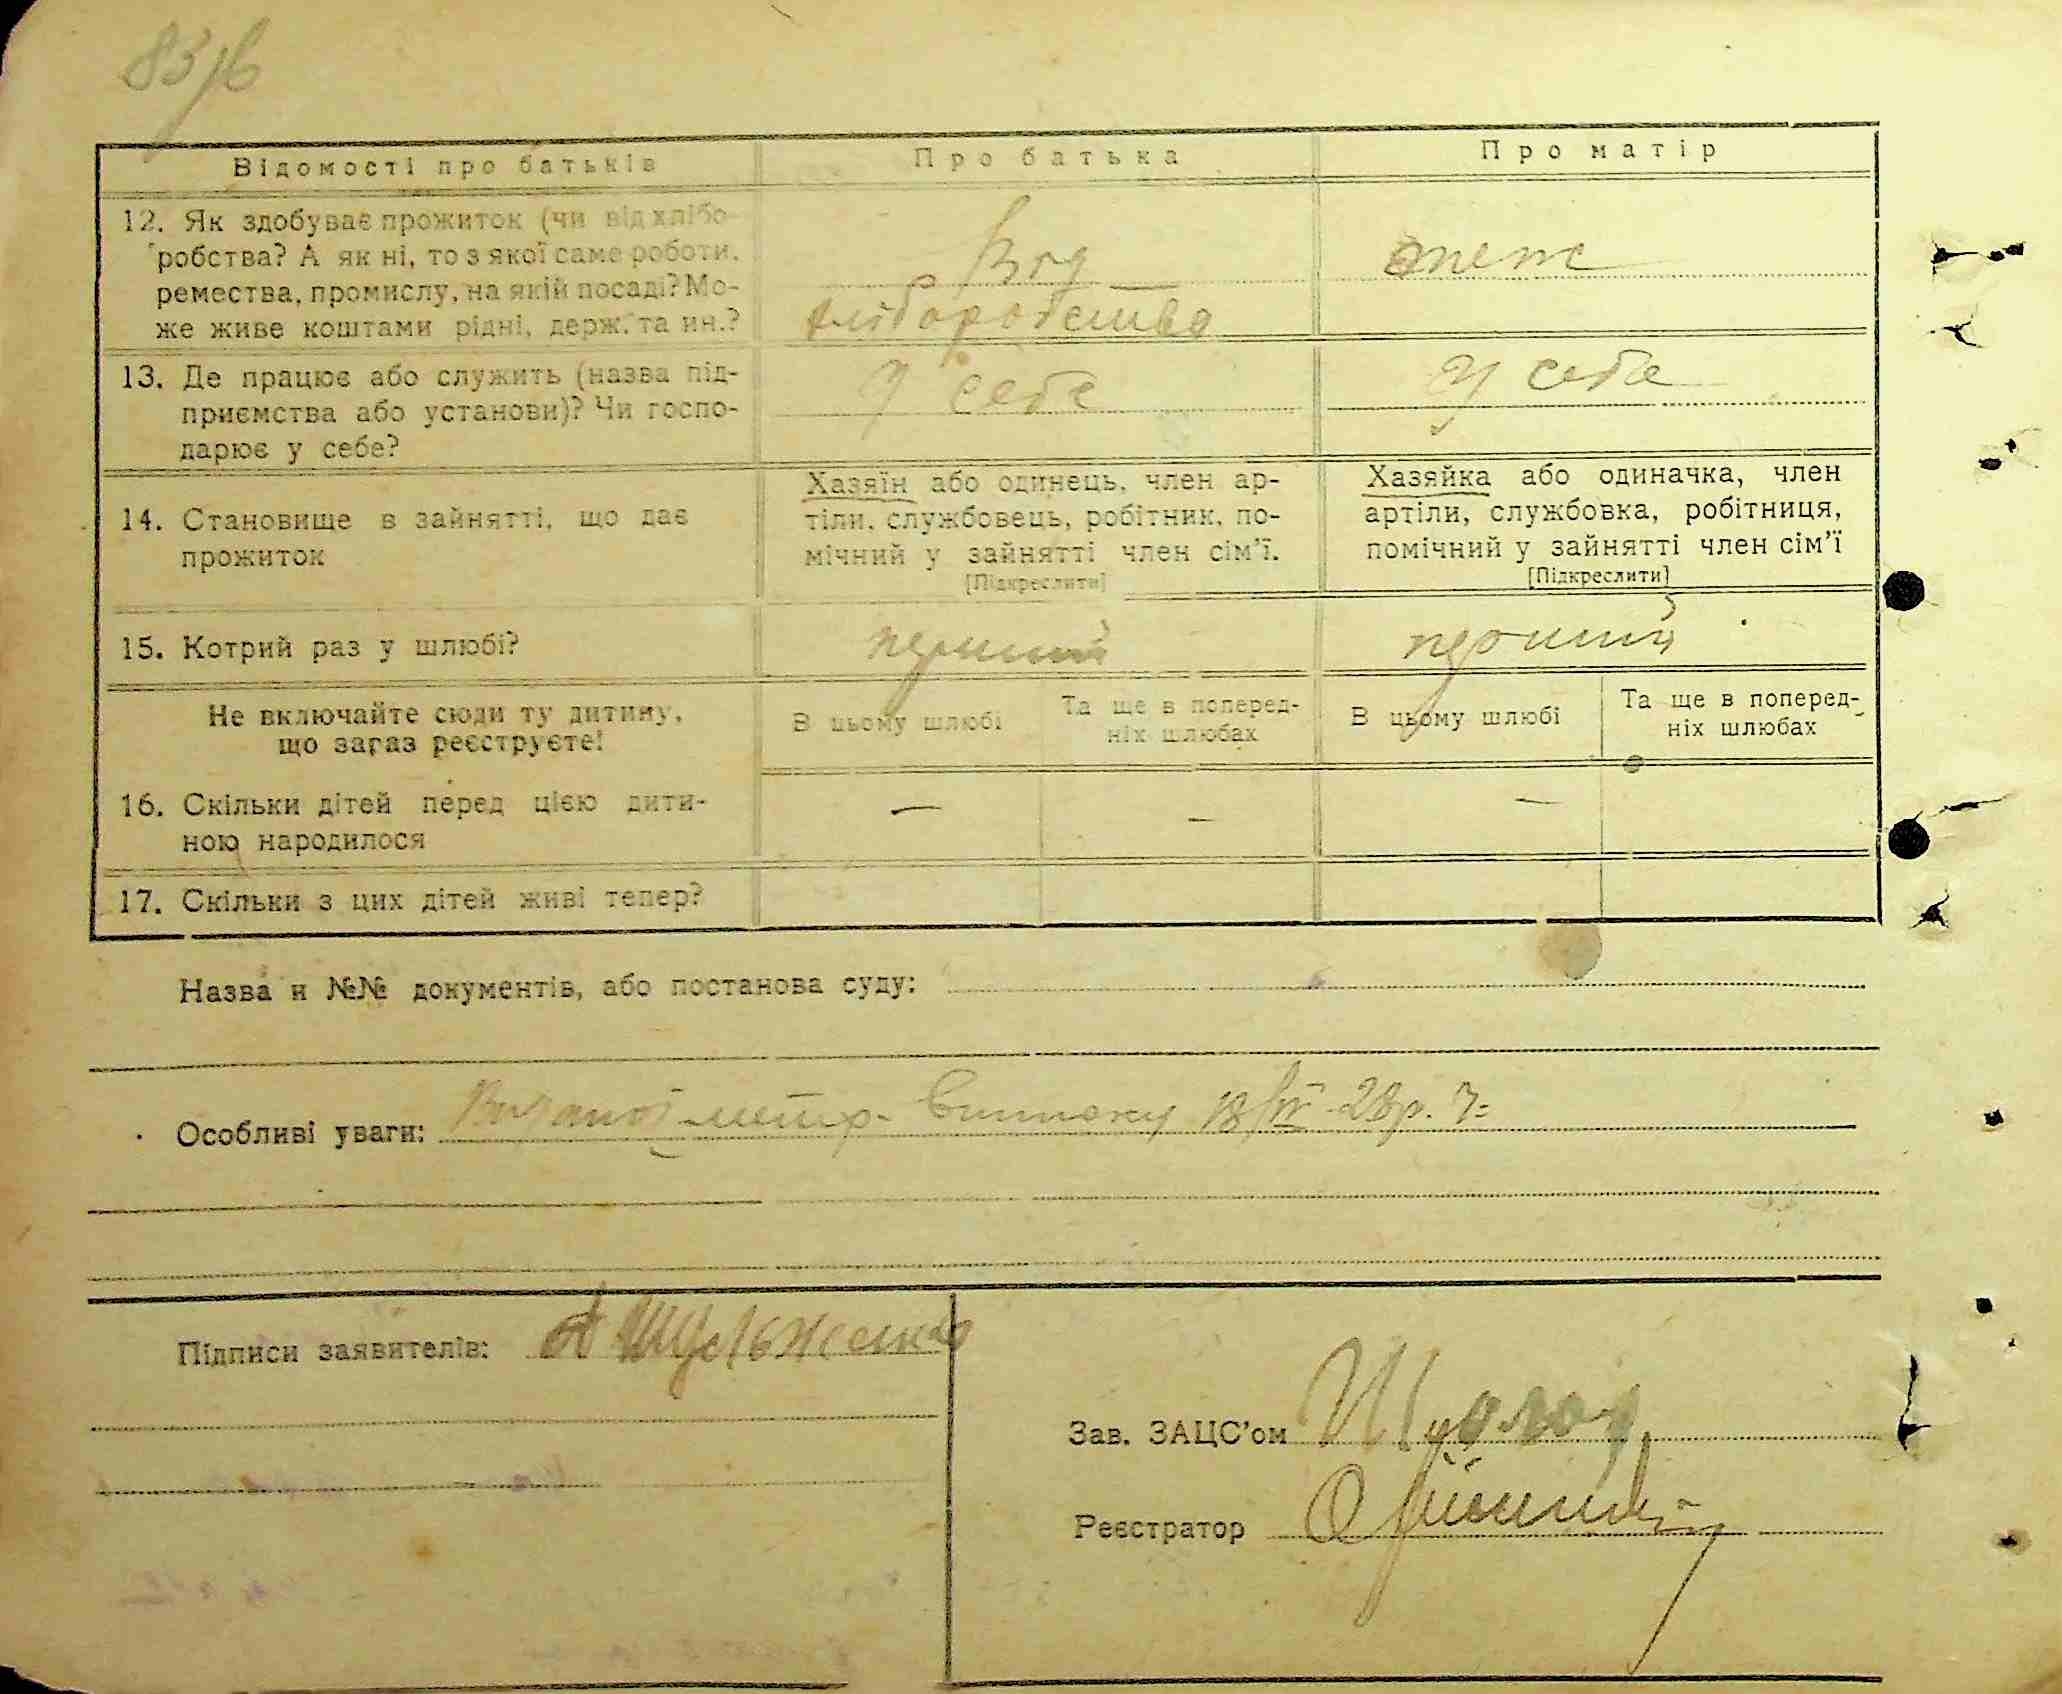 83/в
Відомості про батьків
Про батька
Про матір
12. Як здобуває прожиток (чи від хлібо-
робства? А як ні, то з якої саме роботи,
ремества, промислу, на якій посаді? Мо-
же живе коштами рідні, держ. та ин.?
Від
хліборобства
теж
13. Де працює або служить (назва під-
приємства або установи)? Чи госпо-
дарює у себе?
У себе
У себе
14. Становище в зайнятті, що дає
прожиток
Хазяїн або одинець, член ар-
тіли, службовець, робітник, по-
мічний у зайнятті член сім'ї.
[Підкреслити]
Хазяйка або одиначка, член
артіли, службовка, робітниця,
помічний у зайнятті член сім'ї
[Підкреслити]
15. Котрий раз у шлюбі?
перший
перший
Не включайте сюди ту дитину,
що зараз реєструєте!
В цьому шлюбі
Та ще в поперед-
ніх шлюбах
В цьому шлюбі
Та ще в поперед-
ніх шлюбах
16. Скільки дітей перед цією дити-
ною народилося
— — —
17. Скільки з цих дітей живі тепер?
Назва и №№ документів, або постанова суду:
Особливі уваги: метр. 28 р.
Підписи заявителів: А Шульженко
Зав. ЗАЦС'ом
Реєстратор